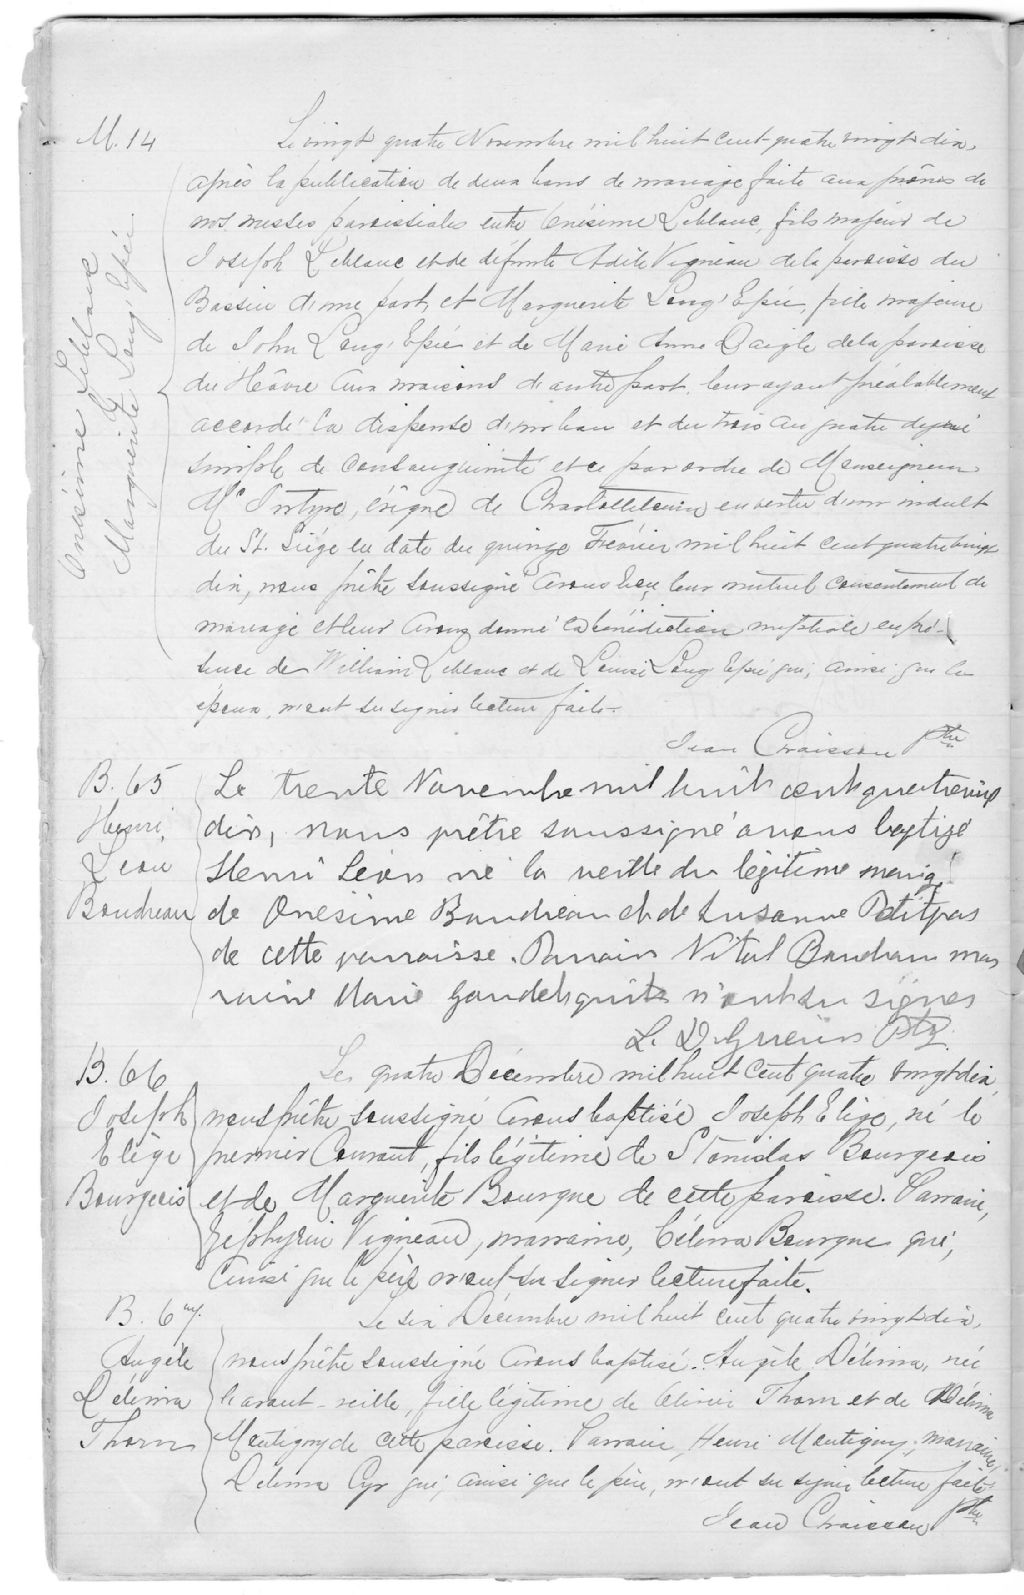 M. 14
Le vingt quatre Novembre mil huit cent quatre vingt dix,
après la publication de deux bans de mariage faite aux prônes de
nos messes paroissiales entre Onésime Leblanc, fils majeur de
Joseph Leblanc et de défunte Adèle Vigneau de la paroisse du
Bassin d'une part, et Marguerite Lang' Epée, fille majeure
de John Lang' Epée et de Marie Anne Daigle de la paroisse
du Hâvre aux maisons d'autre part, leur ayant préalablement
accordé la dispense d'un ban et du trois au quatre degré
simple de consanguinité et ce par ordre de Monseigneur
Mc Intyre, évêque de Charlottetown en vertu d'un indult
du St. Siége en date du quinze Février mil huit cent quatre vingt
dix, nous prêtre soussigné avons reçu leur mutuel consentement de
mariage et leur avons donné la bénédiction nuptiale en pré-
sence de William Leblanc et de Louise Lang Epée qui, ainsi que les
époux, n'ont su signer lecture faite.
Jean Chaisson Ptre
Onésime Leblanc
Marguerite Lang' Epée
B. 65
Henri
Léon
Boudreau
Le trente Novembre mil huit cent quatrevingt
dix, nous prêtre soussigné avons baptizé
Henri Léon né la veille du légitime mariage
de Onésime Boudreau et de Susanne Petitpas
de cette parroisse. Parrain Vital Boudreau mar
raine Marie Gaudet qui n'ont su signer
B. 66
Joseph
Elège
Bourgeois
Le quatre Décembre mil huit cent quatre vingt dix,
nous prêtre soussigné avons baptisé Joseph Elège, né le
premier Courant, fils légitime de Stanislas Bourgeois
et de Marguerite Bourque de cette paroisse. Parrain,
Zéphyrin Vigneau, marraine, Célina Bourque qui,
ainsi que le père n'ont su signer lecture faite.
B. 67.
Angèle
Délima
Thorn
Le six Décembre mil huit cent quatre vingt dix,
nous prêtre soussigné avons baptisé Angèle Délima, née
l'avant-veille, fille légitime de Thorn et de Délima
Montigny de cette paroisse. Parrain, Henri Montigny, marraine,
Délima Cyr qui, ainsi que le père, n'ont su signer lecture faite.
Jean Chaisson Ptre